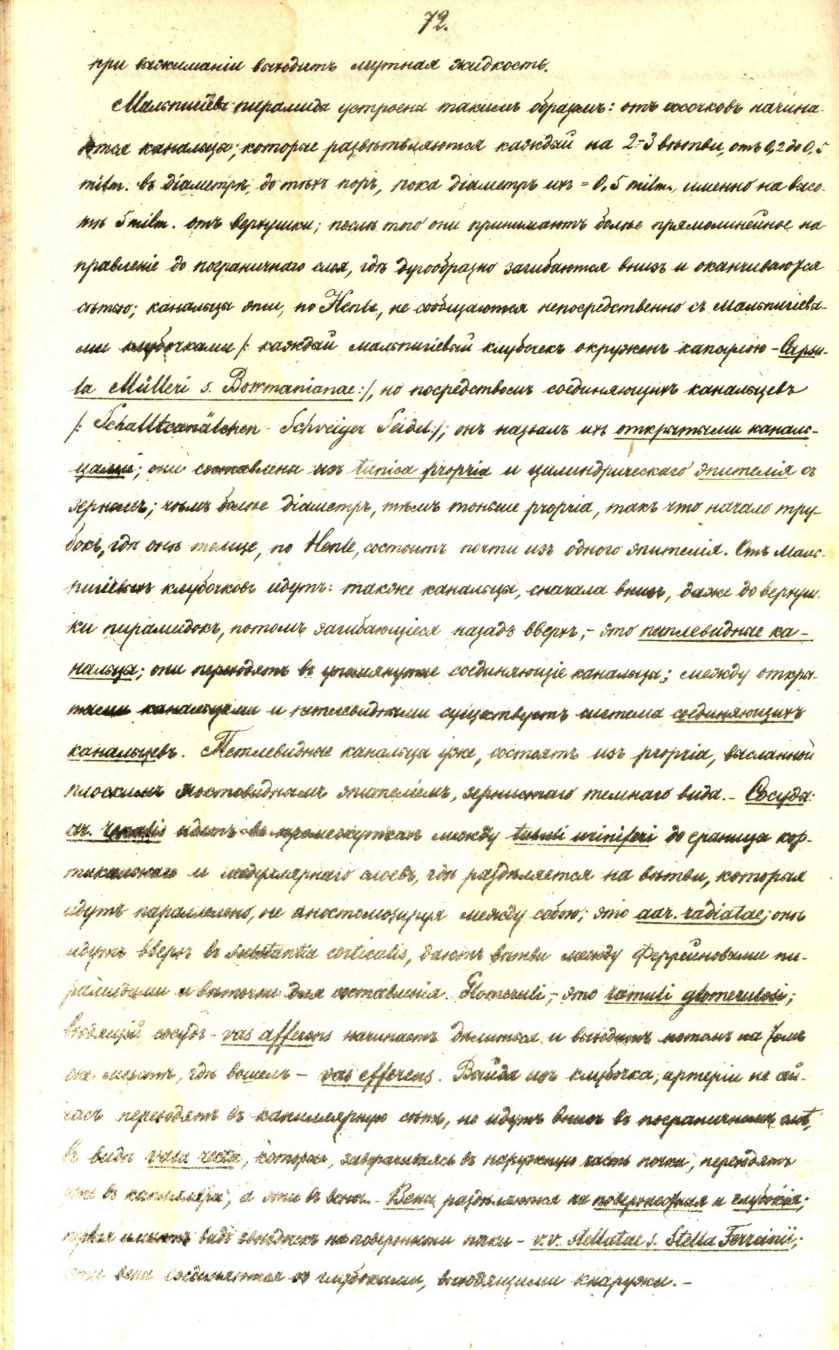 72.
при выжиманіи выходитъ мутная жидкость.
Мальпигіева пирамида устроена такимъ образомъ: отъ сосочковъ начина-
ются канальцы, которые развѣтвляются каждый на 2-3 вѣтви, отъ 0,2 до 0,5
milm. въ діаметрѣ, до тѣхъ поръ, пока діаметръ ихъ = 0,5 milm., именно на высо-
тѣ 5 milm. отъ верхушки; послѣ того они принимаютъ болѣе прямолинейное на-
правленіе до пограничнаго слоя, гдѣ дугообразно загибаются внизъ и оканчиваются
сѣтью; канальцы эти, по Henle, не сообщаются непосредственно съ Мальпигіевы-
ми клубочками /: каждый мальпигіевый клубочекъ окруженъ капсулою – Capsu-
la Mülleri s. Bowmanianae :/, но посредствомъ соединяющихъ канальцевъ
/: Schaltkanälchen Schweiger Seidel :/; онъ назвалъ ихъ открытыми каналь-
цами; они составлены изъ tunica propria и цилиндрическаго эпителія съ
зерномъ; чѣмъ болѣе діаметръ, тѣмъ тоньше propria, такъ что начало тру-
бокъ, гдѣ онѣ толще, по Henle, состоитъ почти изъ одного эпителія. Отъ Маль-
пигіевыхъ клубочковъ идутъ также канальцы, сначала внизъ, даже до верхуш-
ки пирамидокъ, потомъ загибающіеся назадъ вверхъ, – это петлевидные ка-
нальцы; они переходятъ въ упомянутые соединяющіе канальцы; между откры-
тыми канальцами и петлевидными существуетъ система соединяющихъ
канальцевъ. Петлевидные канальцы уже, состоятъ изъ propria, высланной
плоскимъ мостовиднымъ эпителіемъ, зернистаго темнаго вида. – Сосуды:
ar. renalis идетъ въ промежуткахъ между tubuli uriniferi до границы кор-
тикальнаго и медуллярнаго слоевъ, гдѣ раздѣляется на вѣтви, которыя
идутъ параллельно, не аностомозируя между собою; это aar. radiatae; онѣ
идутъ вверхъ въ substantia corticalis, даютъ вѣтви между Феррейновыми пи-
рамидами и вѣточки для составленія Glomeruli, – это ramuli glomerulosi;
входящій сосудъ – vas afferens начинаетъ дѣлиться и выходитъ потомъ на томъ
же мѣстѣ, гдѣ вошелъ – vas efferens. Выйдя изъ клубочка, артеріи не сей-
часъ переходятъ въ капиллярную сѣть, но идутъ внизъ въ пограничномъ слоѣ,
въ видѣ vasa recta, которыя, заворачиваясь въ наружную часть почки, переходятъ
уже въ капилляры, а эти въ вены. – Вены раздѣляются на поверхностныя и глубокія;
первыя имѣютъ видъ звѣздокъ на поверхности почки – v.v. stellatae s. Stella Ferreinii;
эти вены соединяются съ глубокими, выходящими кнаружи. –